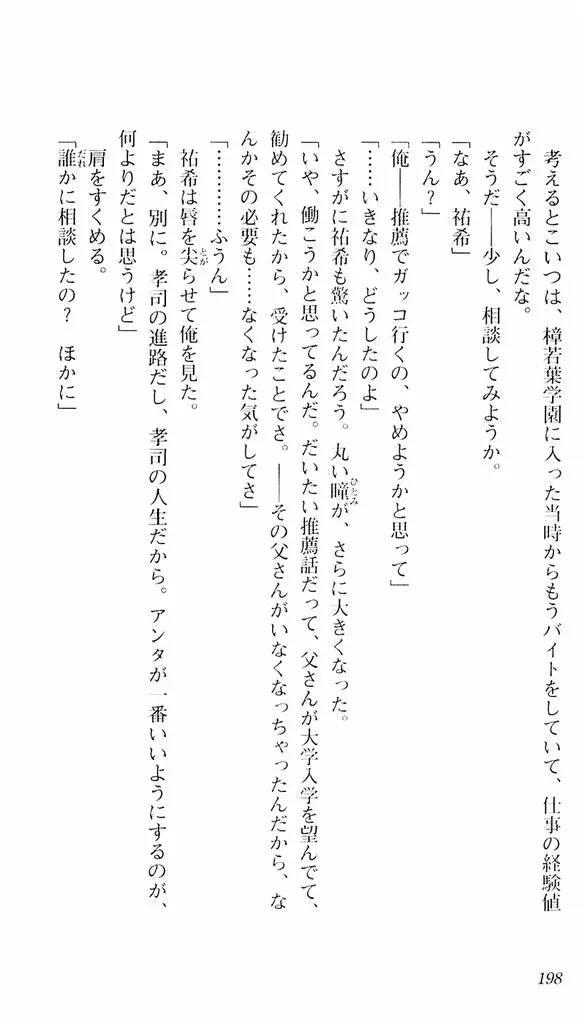 考えるとこいつは、樟若葉学園に入った当時からもうバイトをしていて、仕事の経験値
がすごく高いんだな。
そうだ――少し、相談してみようか。
「なあ、祐希」
「うん？」
「俺――推薦でガッコ行くの、やめようかと思って」
「……いきなり、どうしたのよ」
さすがに祐希も驚いたんだろう。丸い瞳が、さらに大きくなった。
ひとみ
「いや、働こうかと思ってるんだ。だいたい推薦話だって、父さんが大学入学を望んでて、
勧めてくれたから、受けたことでさ。――その父さんがいなくなっちゃったんだから、な
んかその必要も……なくなった気がしてさ」
「…………ふうん」
祐希は唇を尖らせて俺を見た。
とが
「まあ、別に。孝司の進路だし、孝司の人生だから。アンタが一番いいようにするのが、
何よりだとは思うけど」
肩をすくめる。
「誰かに相談したの？　ほかに」
だれ
198